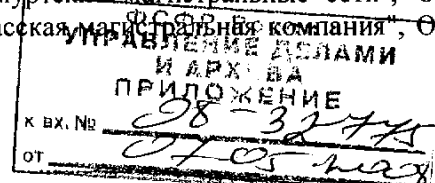 магистральные сети", О
асская магистральная компания", О
ФСФР России
УПРАВЛЕНИЕ ДЕЛАМИ
И АРХИВА
ПРИЛОЖЕНИЕ
к вх. № 08-32775
от 07-05